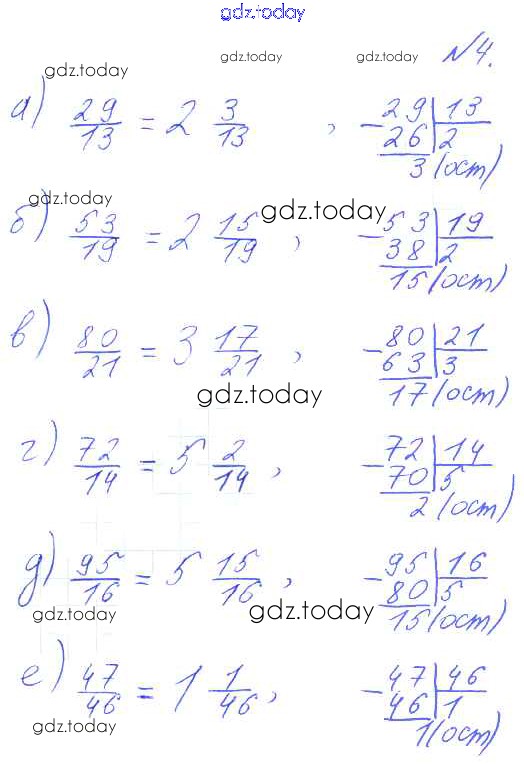 gdz.today
gdz.today gdz.today gdz.today №4.
а) 29/13 = 2 3/13 , - 29 | 13
26 | 2
3 (ост)
gdz.today
б) 53/19 = 2 15/19 , - 53 | 19
gdz.today
38 | 2
15 (ост)
в) 80/21 = 3 17/21 , - 80 | 21
63 | 3
17 (ост)
gdz.today
г) 72/14 = 5 2/14 , - 72 | 14
70 | 5
2 (ост)
д) 95/16 = 5 15/16 , - 95 | 16
80 | 5
15 (ост)
gdz.today gdz.today gdz.today
е) 47/46 = 1 1/46 , - 47 | 46
46 | 1
1 (ост)
gdz.today gdz.today